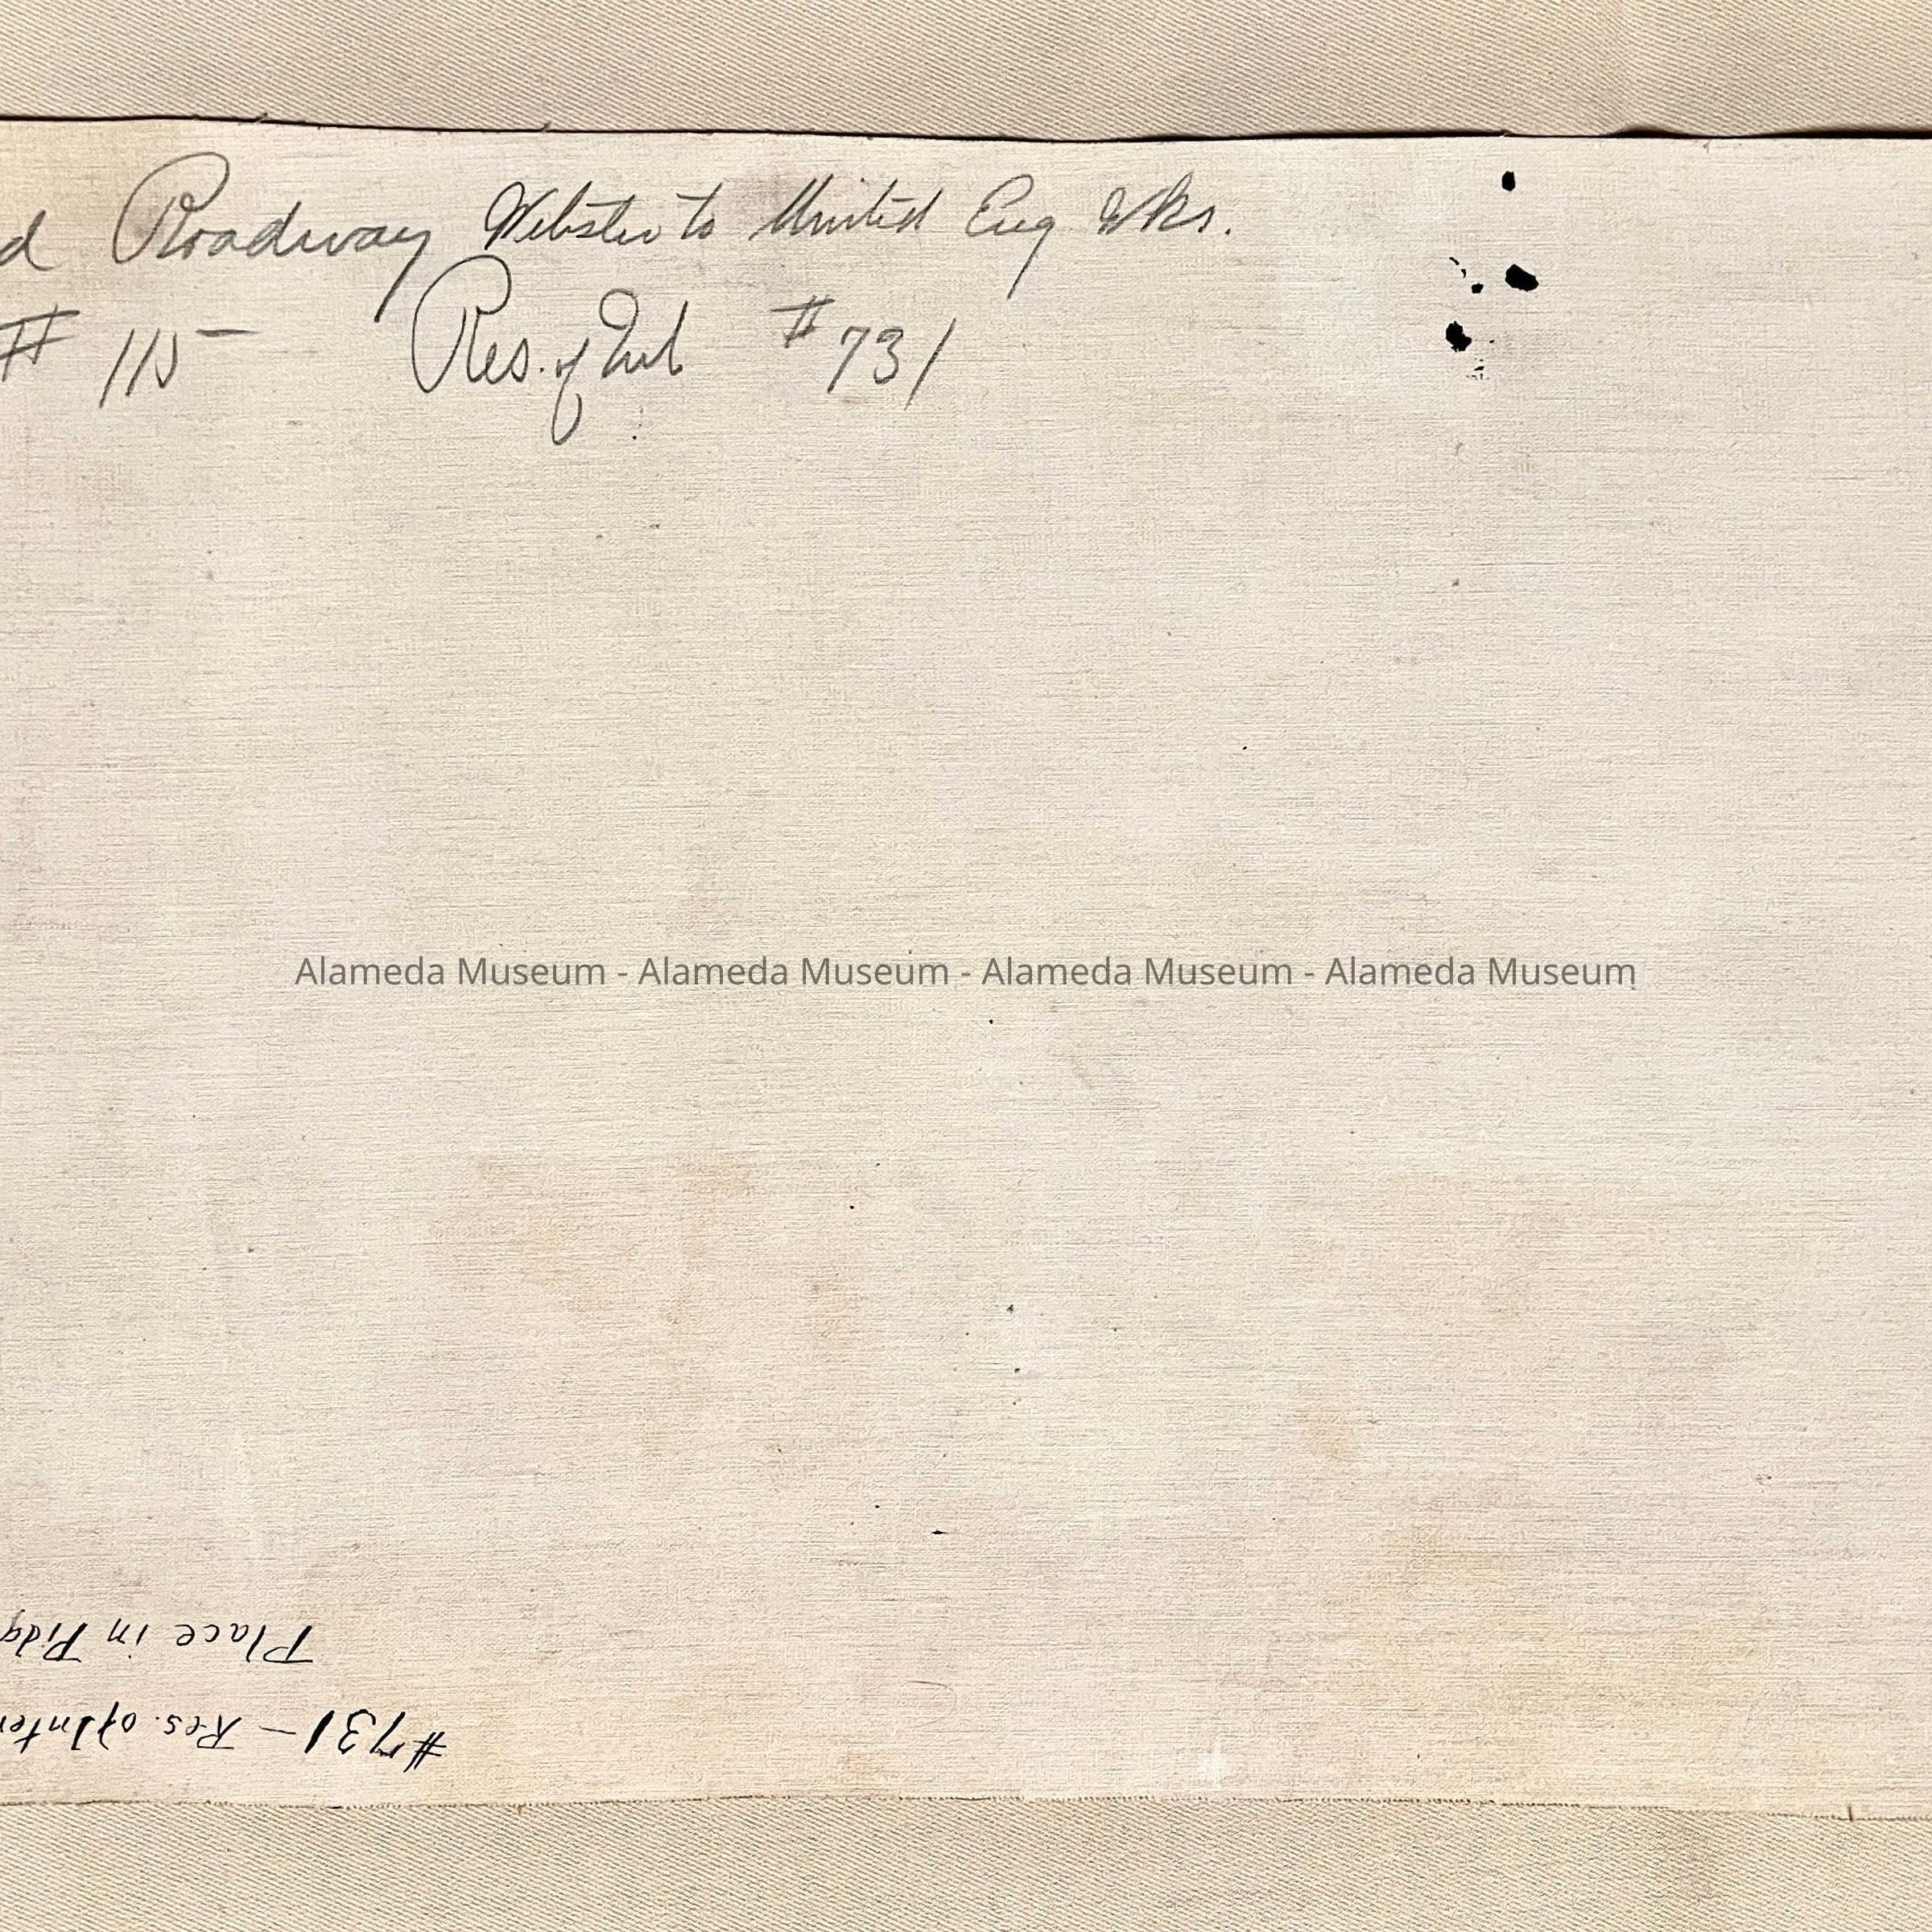 d Roadway Webster to United Eng Wks.
# 115 Res. of Int #731
Alameda Museum - Alameda Museum - Alameda Museum - Alameda Museum
#731 – Res. of Inte
Place in Pidg